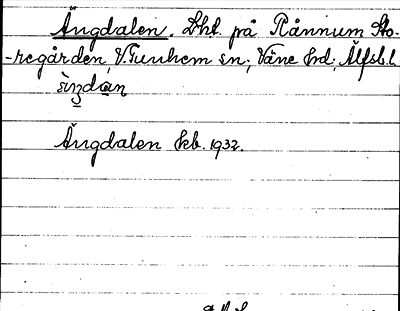 Ängdalen. Lht. på Rånnum Sto-
-regården, V. Tunhem sn; Väne hd; Älfsb. l.
Ängdalen kb. 1932.